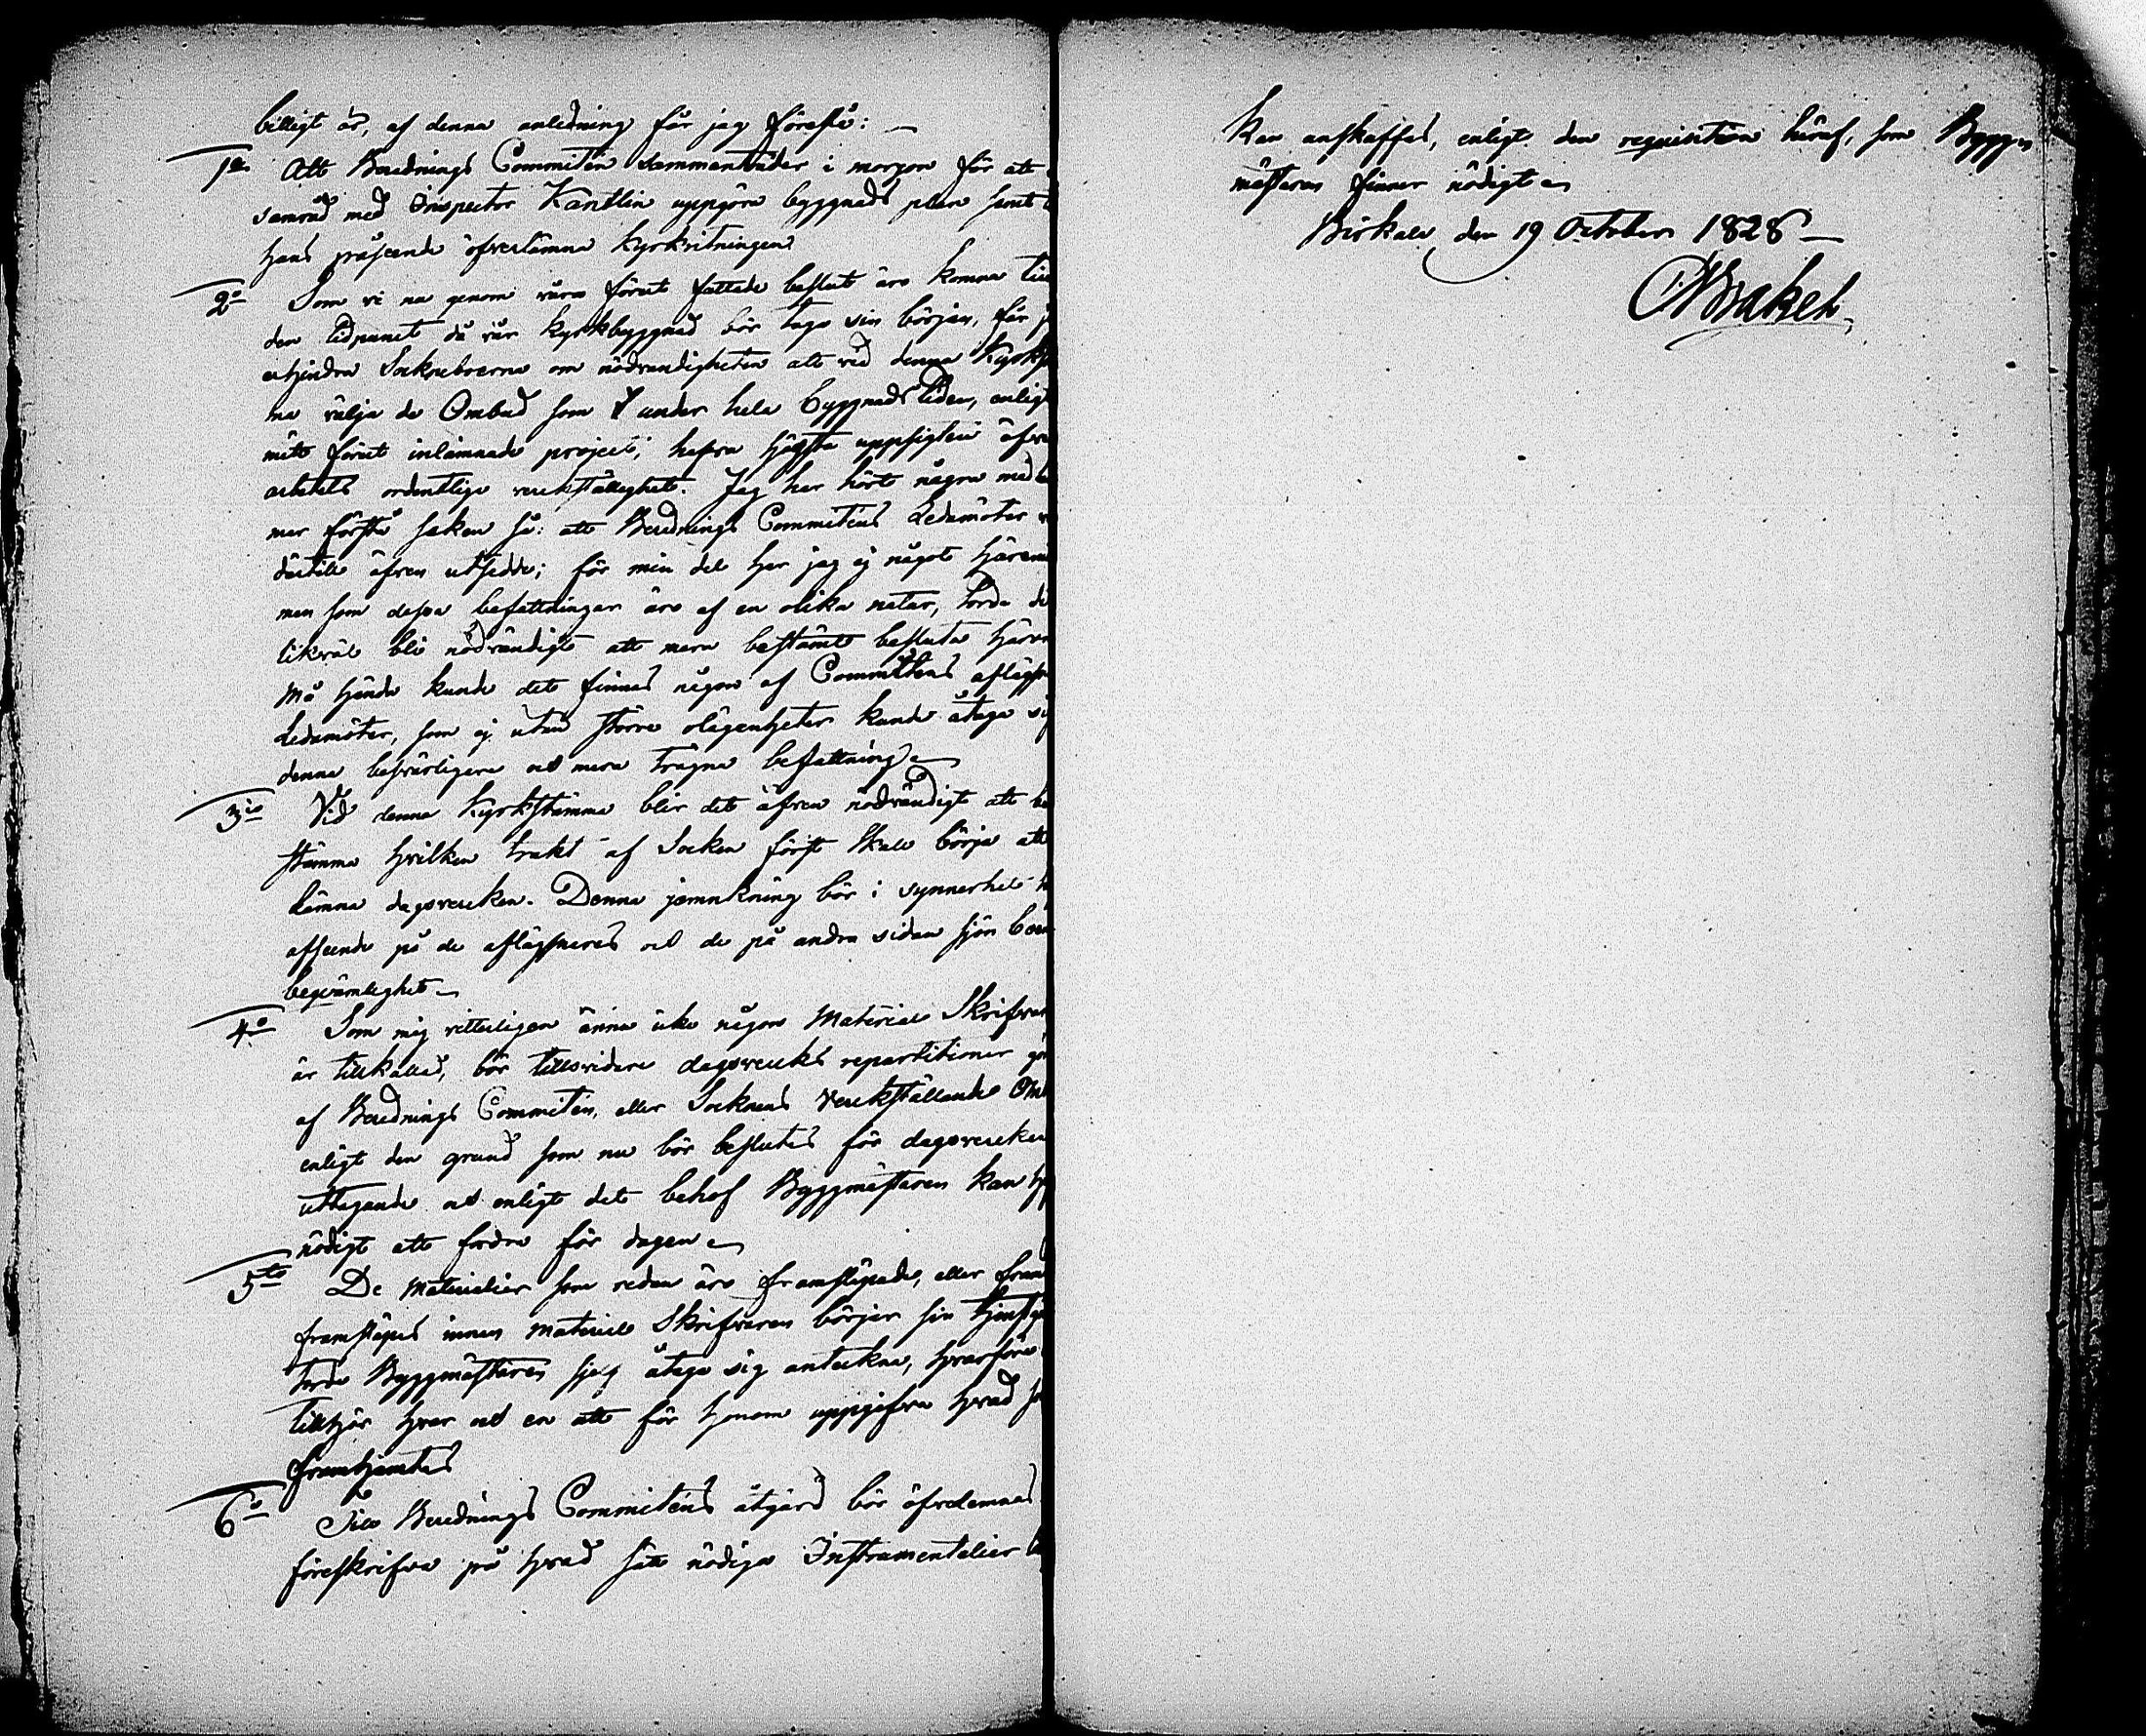 billigt är, af denna anledning får jag föreslå: —
1o Att Berednings Committén sammanträder i morgon för att
samråd med Inspector Kantlin uppgöra byggnads plan samt
hans påseende öfverlämna kyrkritningen
2o Som vi nu genom våra förut fattade beslut äro komna till
den tidpunct då vår kyrkbyggnad bör taga sin början, får
erhindra Sockneboerne om nödvändigheten att vid denna Kyrkst
ma välja de Ombud som under hela byggnads tiden, enligt
mitt förut inlämnade project, hafva högsta uppsigten öfver
arbetets ordentliga verkställighet. Jag har hört några med
mer förstå saken så: att Berednings Committéns Ledamöter
därtill äfven utsedde; för min del har jag ej något häremo
men som dessa befattningar äro af en olika natur, torde de
likväl bli nödvändigt att mera bestämt besluta härom
Må hända kunde det finnas någon af Committéns aflägsn
Ledamöter, som ej utan större olägenheter kunde åtaga sig
denna besvärligare och mera trägna befattning —
3io Vid denna Kyrkstämma blir det äfven nödvändigt att be
stämma hvilken trakt af Socken först skall börja att
lämna dagsverken. Denna jämnkning bör i synnerhet
afseende på de aflägsnares och de på andra sidan sjön boen
beqvämlighet —
4o Som mig vitterligen ännu icke någon Material Skrifvare
är tillkallad, bör tillsvidare dagsverks repartitioner gö
af Berednings Committén, eller Socknens Verkställande Omb
enligt den grund som nu bör beslutas för dagsverken
uttagande och enligt det behof Byggmästaren kan
nödigt att fordra för dagen —
5to De Materialier som redan äro framsläpade, eller fram
framsläpes innan Material Skrifvaren börjar sin tjenstgö
torde Byggmästaren sjelf åtaga sig anteckna, hvarföre
tillhör hvar och en att för honom uppgifva hvad
framhämtas
6o Till Berednings Committéns åtgärd bör öfverlämnas
föreskrifva på hvad sätt nödiga Instrumentalier
kan anskaffas, enligt den requisition häraf, som Bygg
mästaren finner nödigt —
Birkala den 19 October 1828 —